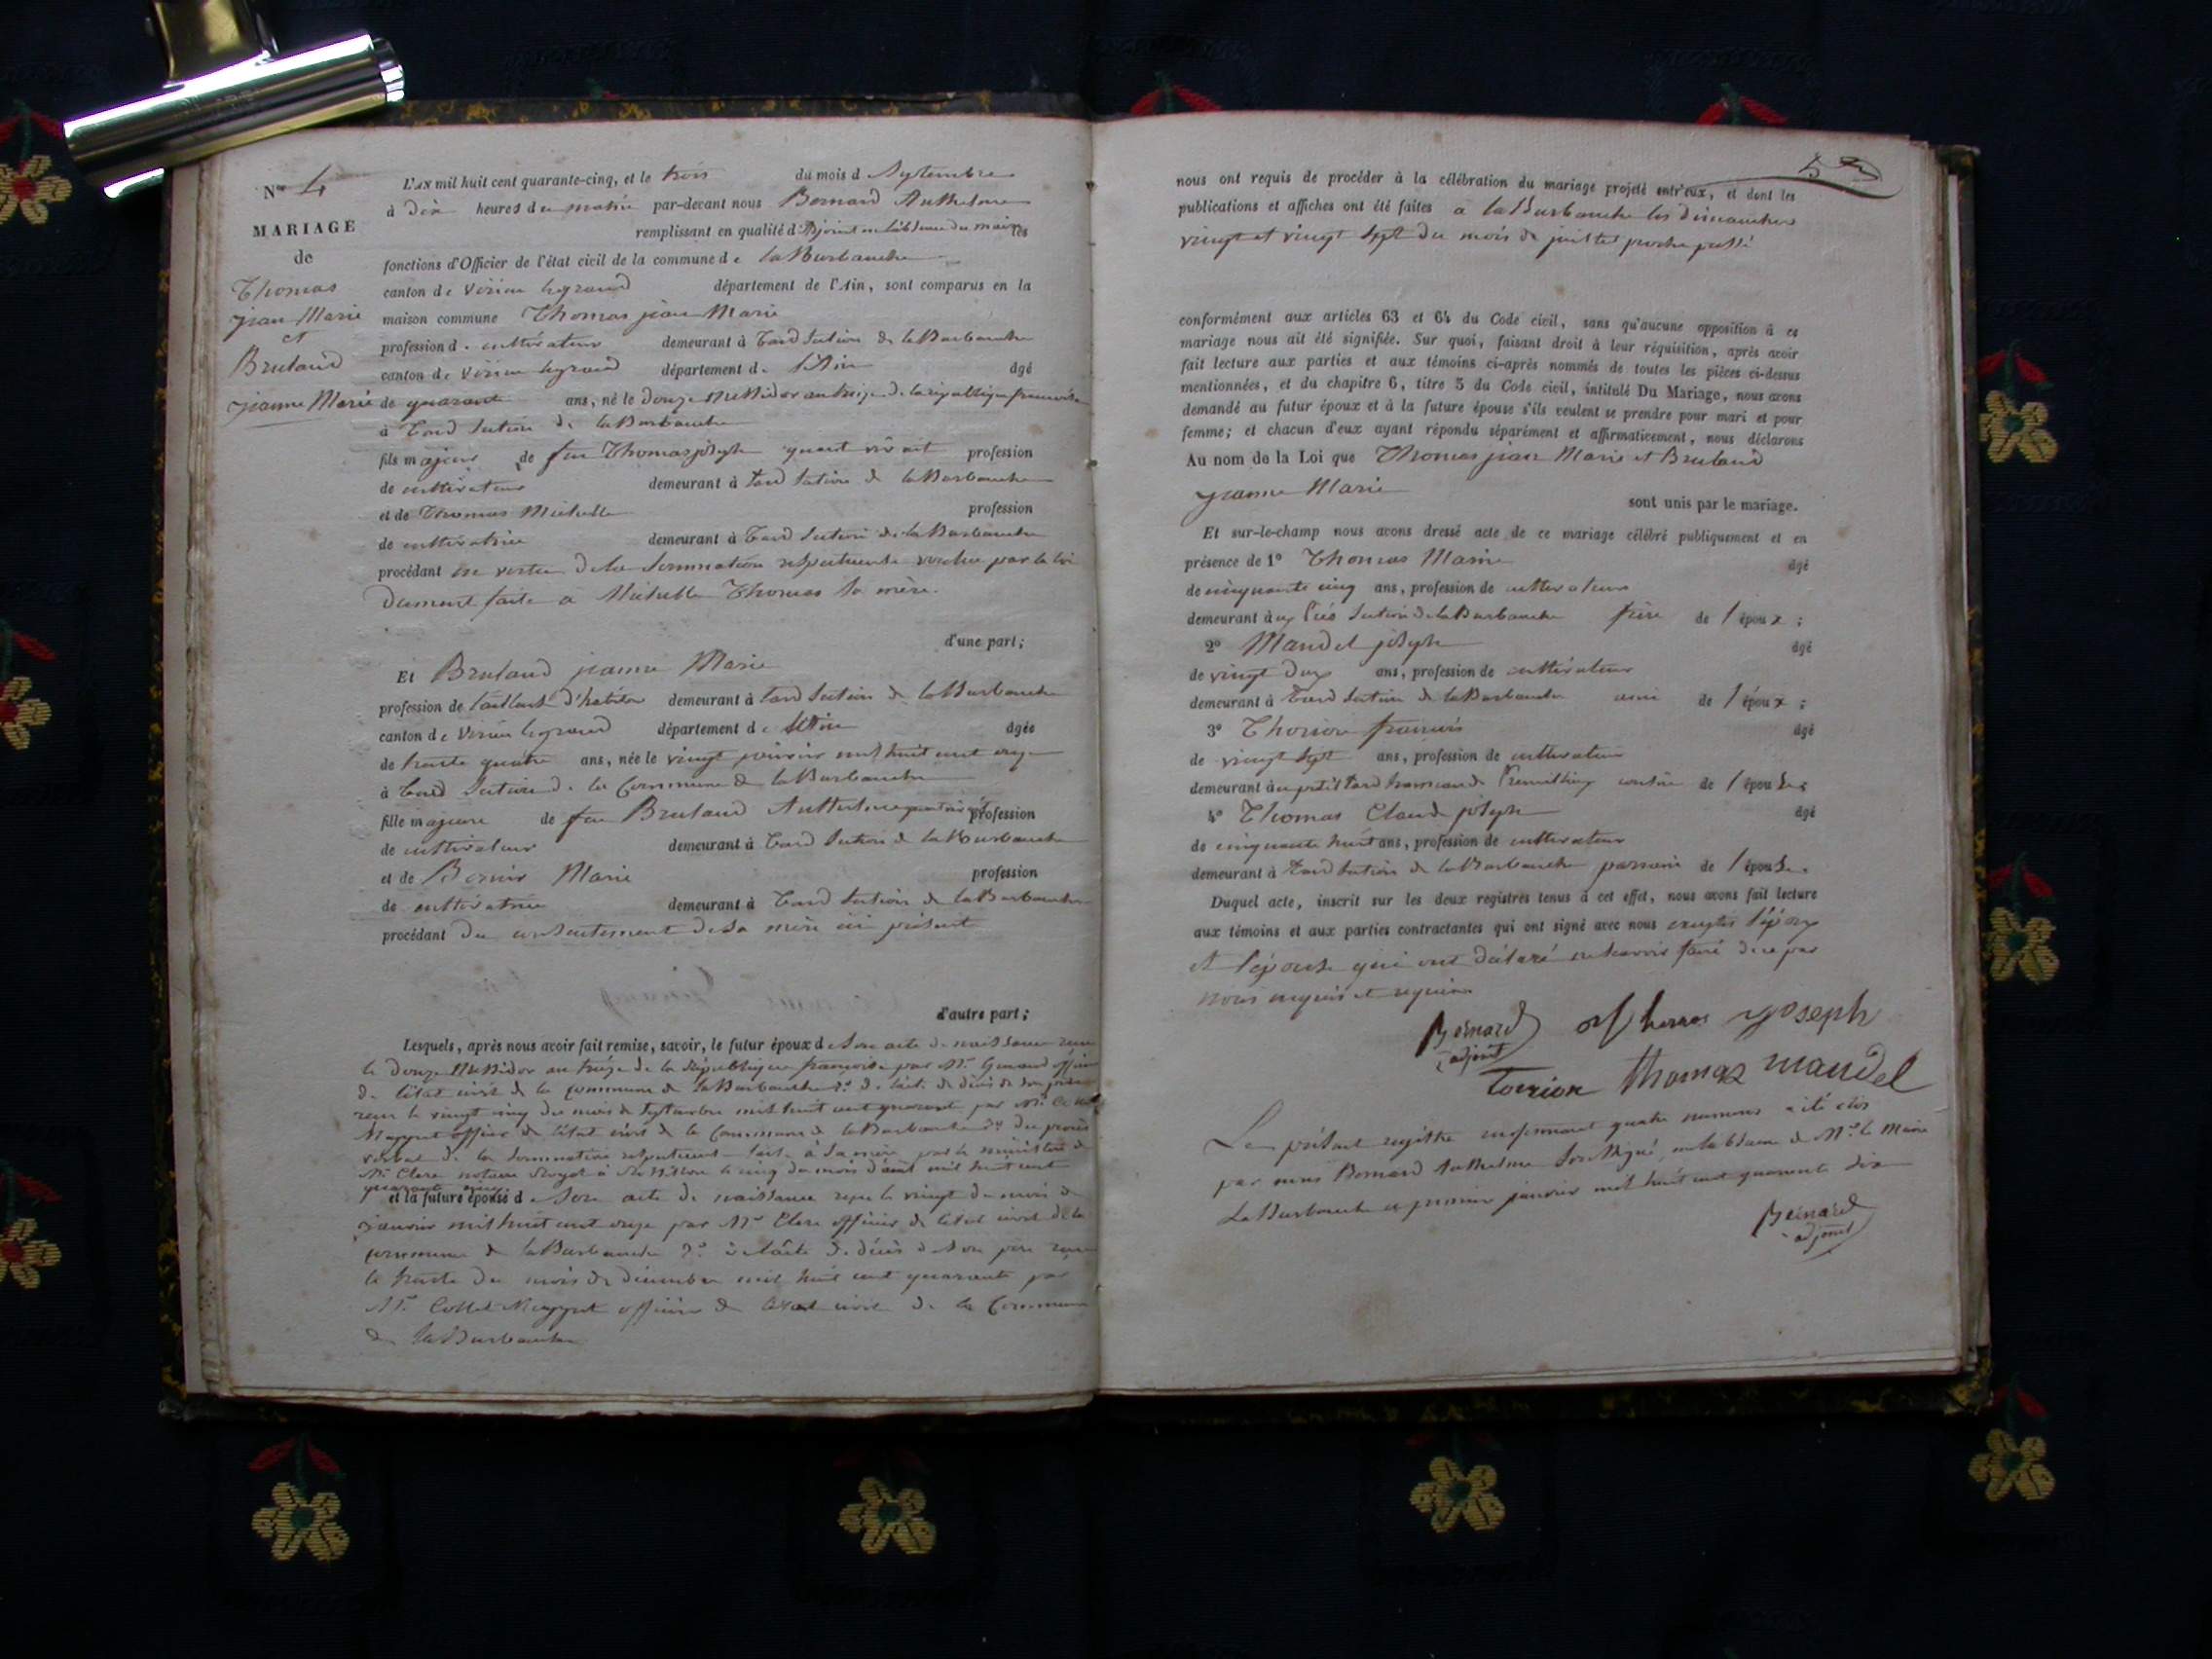 Nº 4
MARIAGE
de
Thomas
jean Marie
et
Brulaud
jeanne Marie
L'AN mil huit cent quarante-cinq, et le trois du mois d Septembre
à dix heures du matin par-devant nous Bernard Anthelme
remplissant en qualité d'Adjoint en l'absence du maire les
fonctions d'Officier de l'état civil de la commune de la Burbanche
canton de Virieu legrand département de l'Ain, sont comparus en la
maison commune Thomas jean Marie
profession de cultivateur demeurant à Tard Section de la Burbanche
canton de Virieu legrand département de l'Ain âgé
de quarante ans, né le douze Messidor an treize de la république française
à Tard Section de la Burbanche
fils majeur de feu Thomas joseph quant vivait profession
de cultivateur demeurant à Tard Section de la Burbanche
et de Thomas Michelle profession
de cultivatrice demeurant à Tard Section de la Burbanche
procédant en vertu de la Sommation respectueuse voulue par la loi
dument faite à Michelle Thomas sa mère.
d'une part;
Et Brulaud jeanne Marie
profession de tailleuse d'habits demeurant à Tard Section de la Burbanche
canton de Virieu legrand département de l'Ain âgée
de trente quatre ans, née le vingt janvier mil huit cent onze
à Tard Section de la Commune de la Burbanche
fille majeure de feu Brulaud Anthelme profession
de cultivateur demeurant à Tard Section de la Burbanche
et de Marie profession
de cultivatrice demeurant à Tard Section de la Burbanche
procédant du consentement de Sa mère ici présente
d'autre part;
Lesquels, après nous avoir fait remise, savoir, le futur époux de Son acte de naissance reçu
le douze Messidor an treize de la République française par Mr officier
de l'état civil de la commune de la Burbanche 2º de l'acte de décès de Son père
reçu le vingt cinq du mois de Septembre mil huit cent quarante par Mr Collet
Meygret officier de l'état civil de la Commune de la Burbanche 3º du procès
verbal de la Sommation respectueuse faite à Sa mère par le ministère de
Mr Clerc notaire le cinq du mois d'août mil huit cent
quarante cinq.
et la future épouse de Son acte de naissance reçu le vingt du mois de
janvier mil huit cent onze par Mr Clerc officier de l'état civil de la
commune de la Burbanche 2º de l'acte de décès de Son père reçu
le trente du mois de décembre mil huit cent quarante par
Mr Collet Meygret officier de l'état civil de la Commune
de la Burbanche
nous ont requis de procéder à la célébration du mariage projeté entr'eux, et dont les
publications et affiches ont été faites à la Burbanche les dimanches
vingt et vingt Sept du mois de juillet proche passé
conformément aux articles 63 et 64 du Code civil, sans qu'aucune opposition à ce
mariage nous ait été signifiée. Sur quoi, faisant droit à leur réquisition, après avoir
fait lecture aux parties et aux témoins ci-après nommés de toutes les pièces ci-dessus
mentionnées, et du chapitre 6, titre 5 du Code civil, intitulé Du Mariage, nous avons
demandé au futur époux et à la future épouse s'ils veulent se prendre pour mari et pour
femme; et chacun d'eux ayant répondu séparément et affirmativement, nous déclarons
Au nom de la Loi que Thomas jean Marie et Brulaud
jeanne Marie
sont unis par le mariage.
Et sur-le-champ nous avons dressé acte de ce mariage célébré publiquement et en
présence de 1º Thomas Marin âgé
de cinquante cinq ans, profession de cultivateur
demeurant Section de la Burbanche frère de l'époux;
2º Mandel joseph âgé
de vingt deux ans, profession de cultivateur
demeurant à Tard Section de la Burbanche ami de l'époux;
3º Thorion françois âgé
de vingt Sept ans, profession de cultivateur
demeurant au petit Tard hameau de cousin de l'épouse;
4º Thomas Claude joseph âgé
de cinquante huit ans, profession de cultivateur
demeurant à Tard Section de la Burbanche parrain de l'épouse.
Duquel acte, inscrit sur les deux registres tenus à cet effet, nous avons fait lecture
aux témoins et aux parties contractantes qui ont signé avec nous exceptés l'époux
et l'épouse qui ont déclaré ne savoir faire de ce par
nous enquis et requis
Bernard adjoint
thomas joseph
Torrion thomas mandel
Le présent registre renfermant quatre numéros a été clos
par nous Bernard Anthelme Soussigné, en l'absence de Mr le Maire
La Burbanche ce premier janvier mil huit cent quarante Six
Bernard
adjoint